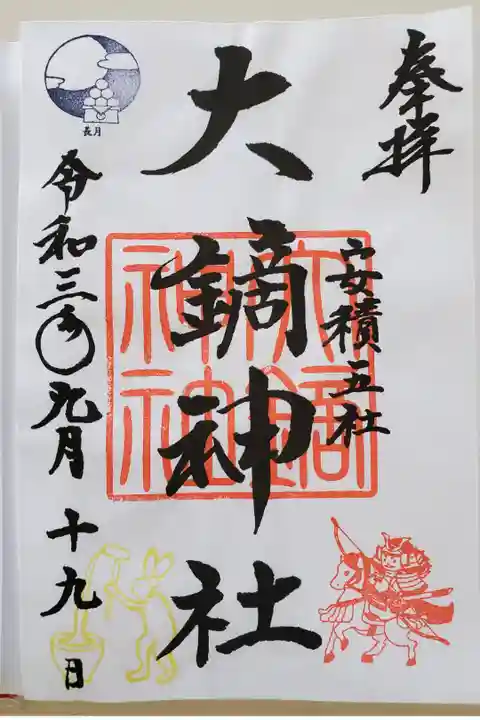 奉拝
安積三社
大鏑神社
大鏑神社
長月
令和三年九月十九日